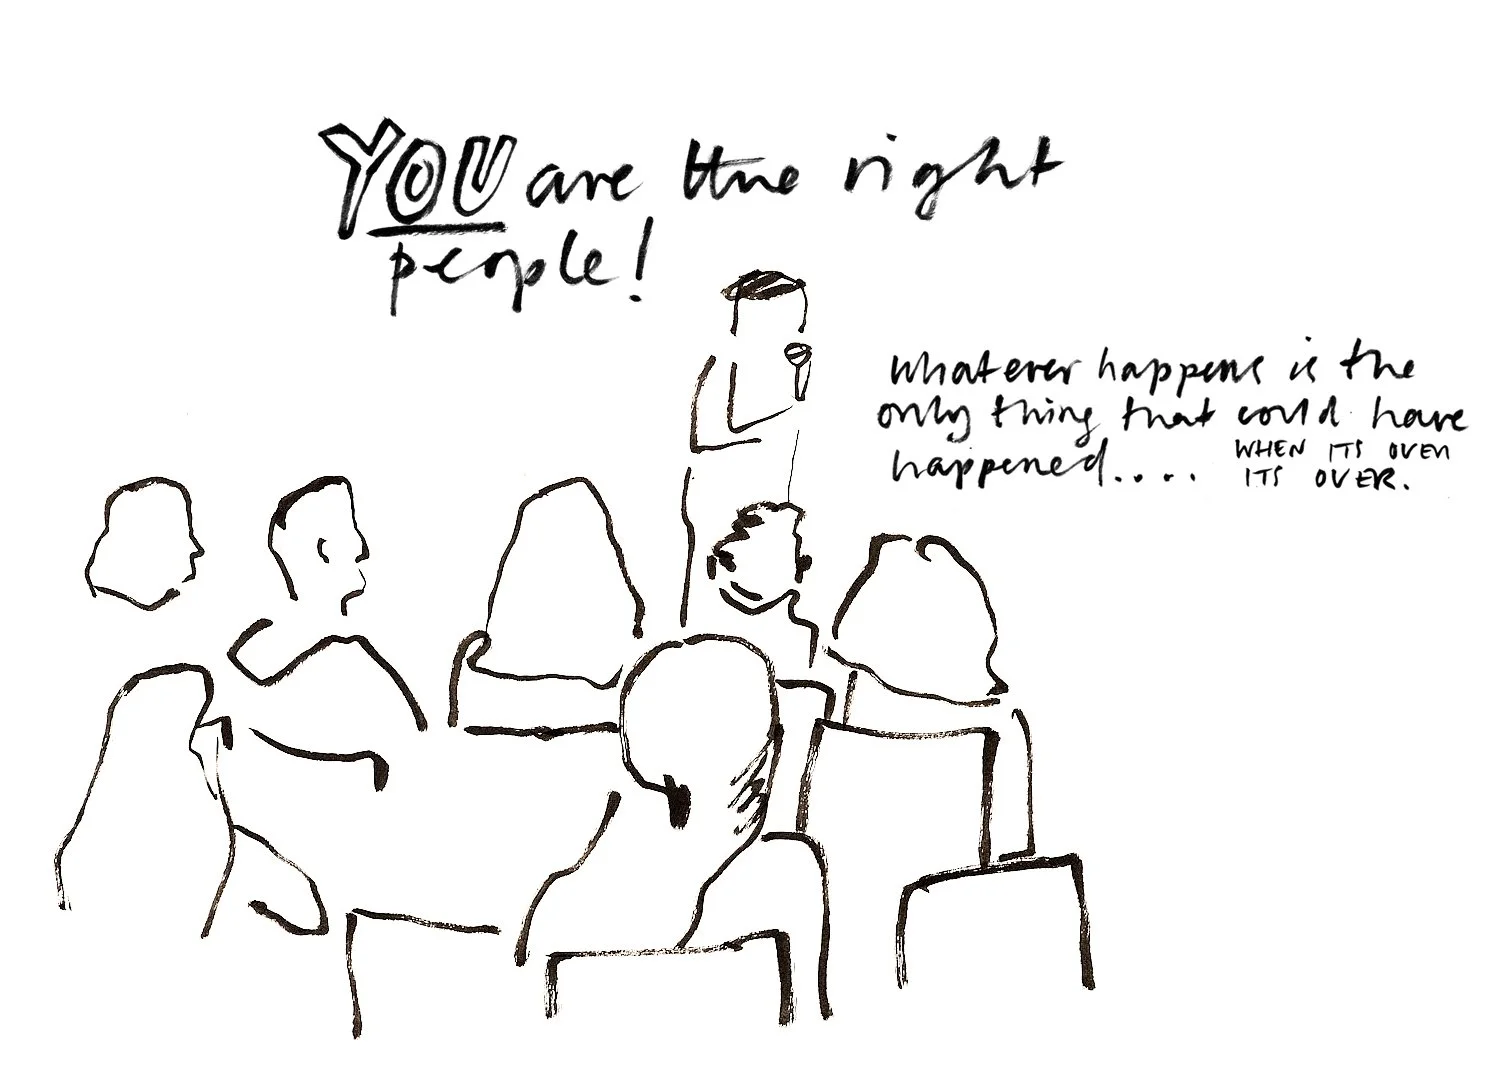 YOU are the right
people!
whatever happens is the
only thing that could have
happened....
WHEN ITS OVER
ITS OVER.